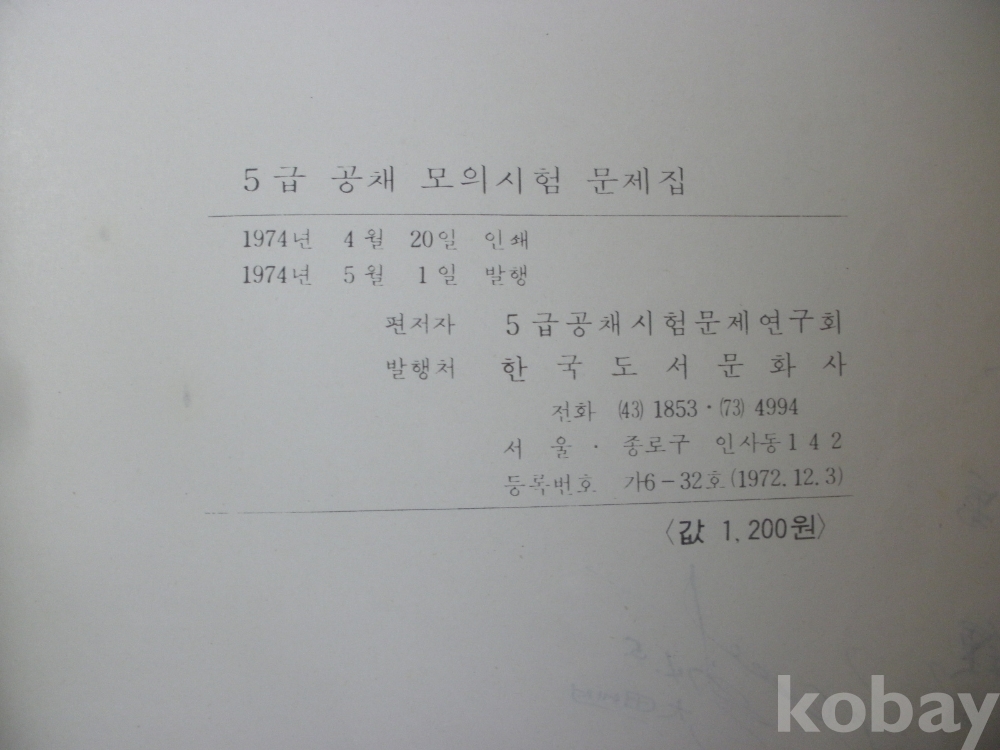 5급 공채 모의시험 문제집
1974년 4월 20일 인쇄
1974년 5월 1일 발행
편저자 5급공채시험문제연구회
발행처 한국도서문화사
전화 (43) 1853·(73) 4994
서울·종로구 인사동142
등록번호 가6-32호(1972.12.3)
〈값 1,200원〉
kobay